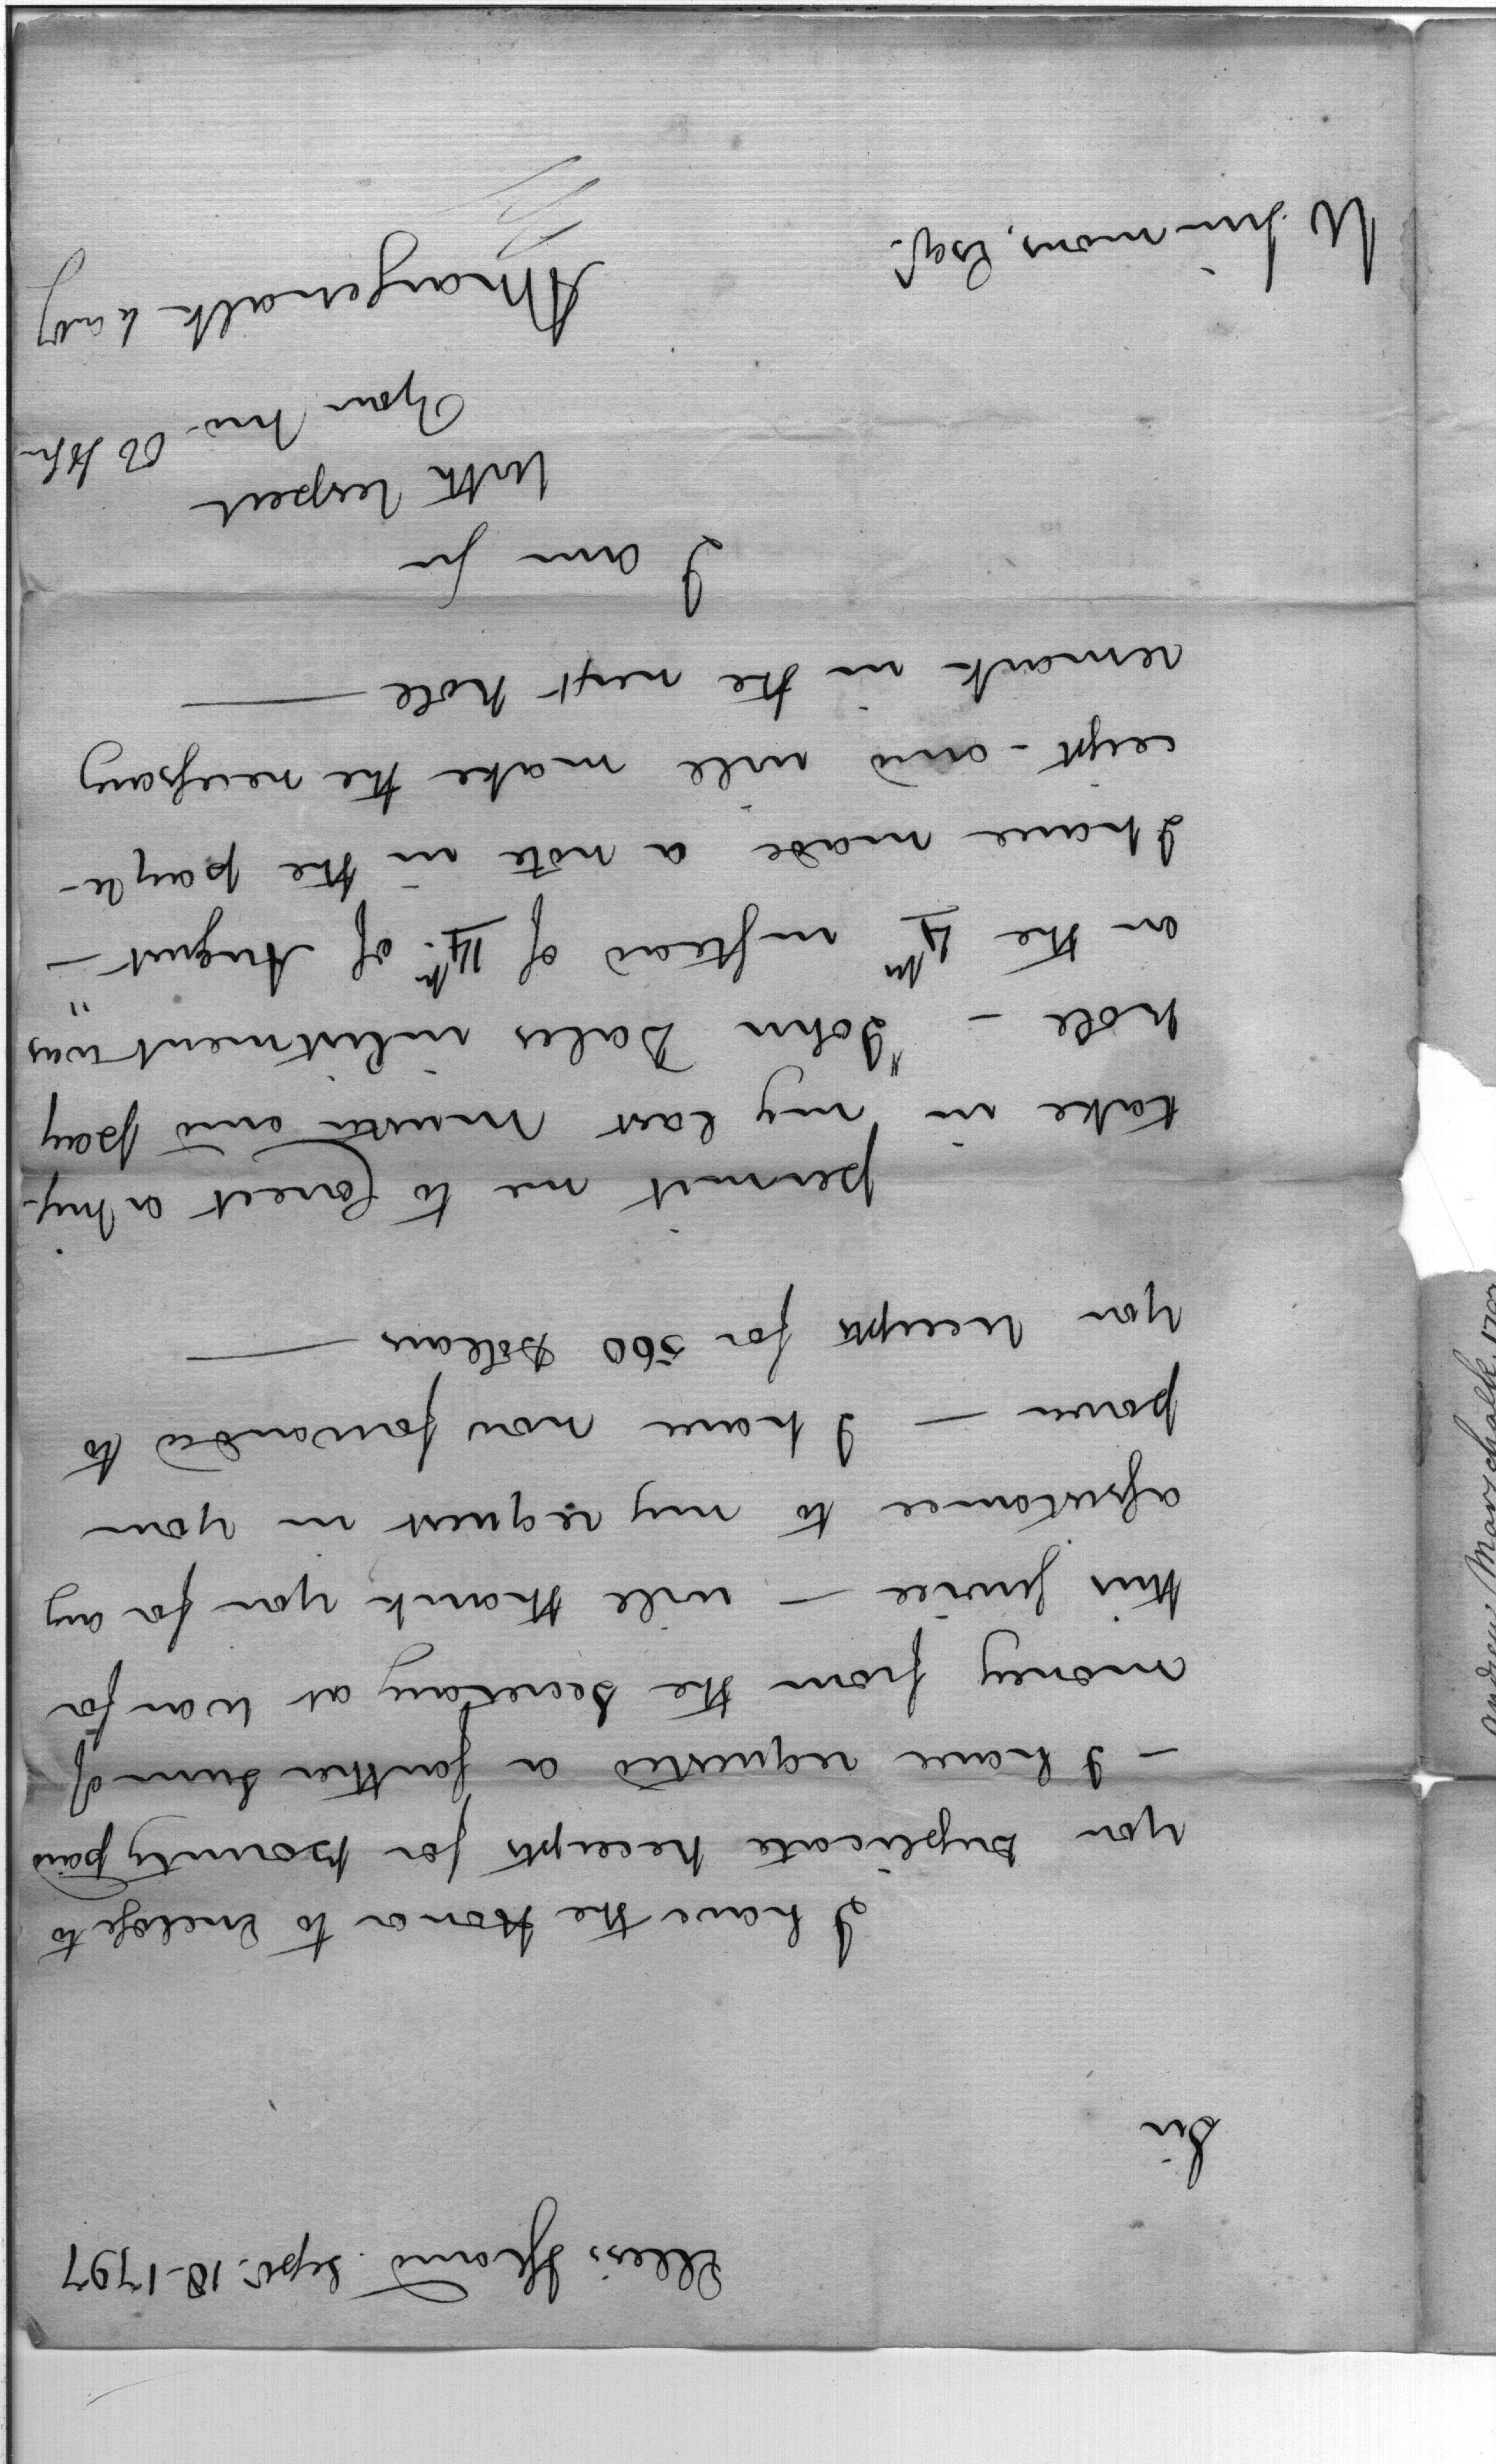 Ellis's Island Sept. 18. 1797
Sir
I have the Honor to Enclose to
you Duplicate Receipts for Bounty paid
- I have requested a further Sum of
money from the Secretary at War for
this Service - will thank you for any
assistance to my request in your
power - I have now forwarded to
you Receipts for 560 Dollars -
permit me to Corect a mis-
take in my last Muster and pay
Role - "John Dales inlistment was"
on the 4th instead of 14th of August -
I have made a note in the pay Re-
ceipt - and will make the necessary
remark in the next Role -
I am Sir
With Respect
Your Hue. Ob Ser
AMarschalk Lt. arty
W Simmons, Esqr.
Andrew Marschalk. 1797